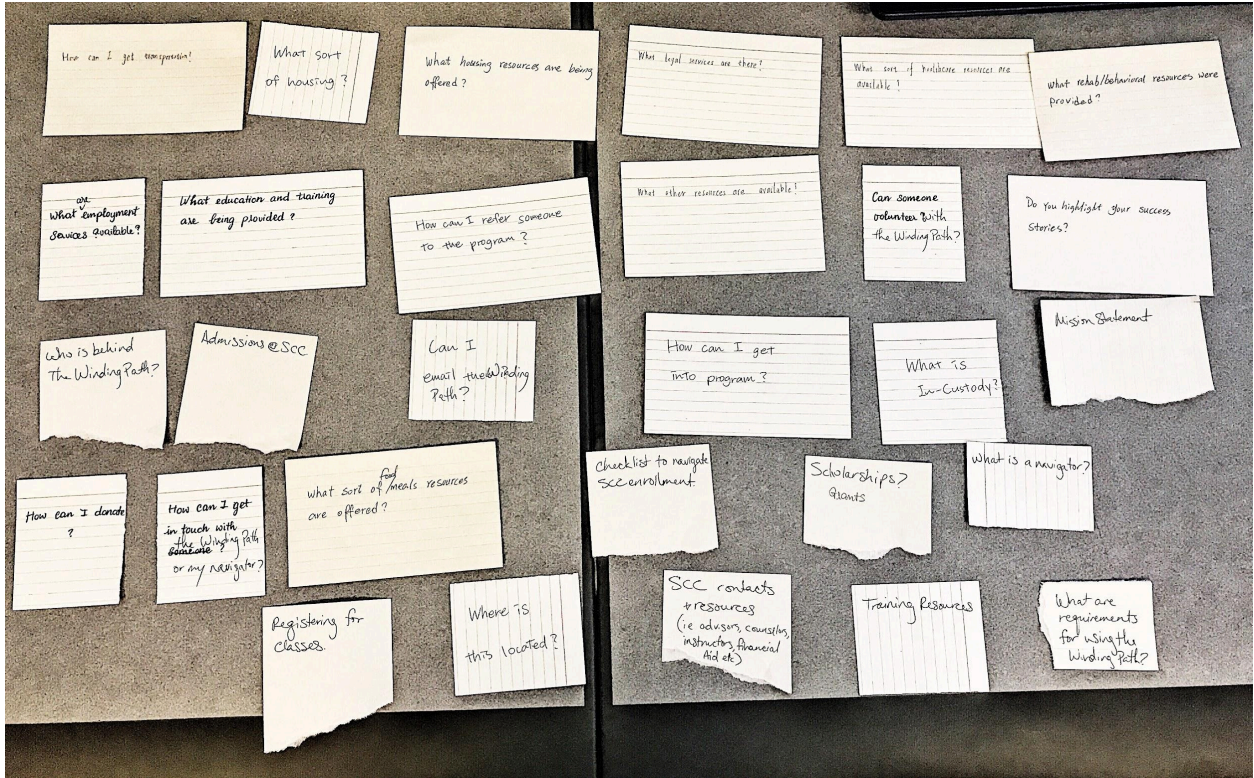 How can I get transportation?
What sort
of housing?
What housing resources are being
offered?
What legal services are there?
What sort of healthcare resources are
available?
What rehab/behavioral resources were
provided?
are
What employment
services available?
What education and training
are being provided?
How can I refer someone
to the program?
What other resources are available?
Can someone
volunteer with
the Winding Path?
Do you highlight your success
stories?
Who is behind
The Winding Path?
Admissions @ SCC
Can I
email the Winding
Path?
How can I get
into program?
What is
In-Custody?
Mission Statement
How can I donate
?
How can I get
in touch with
the Winding Path
someone?
or my navigator?
food
What sort of /meals resources
are offered?
Checklist to navigate
SCC enrollment
Scholarships?
Grants
What is a navigator?
Registering for
classes.
Where is
this located?
SCC contacts
+ resources
(ie advisors, counselors,
instructors, financial
Aid etc)
Training Resources
What are
requirements
for using the
Winding Path?